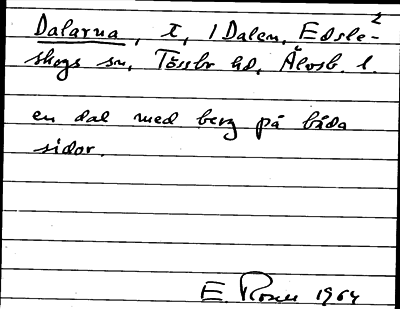 2
Dalarna, t, 1 Dalen, Edsle-
skogs sn, Tössbo hd, Älvsb. l.
en dal med berg på båda
sidor.
E. Rosén 1964